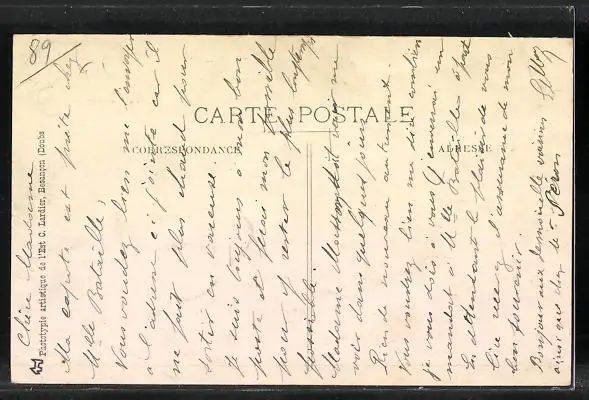 89
CARTE POSTALE
CORRESPONDANCE
ADRESSE
Phototypie artistique de l'Est C. Lardier, Besançon (Doubs
Chère Madame
Ma capote est prête chez
Mlle Bataille,
Vous voudrez bien me l'envoyer
à l'adresse ci jointe car il
ne fait plus chaud pour
sortir en
Je suis toujours à mon bon
poste et ferai mon possible
pour y rester le plus longtemps
possible.
Madame doit venir me
voir dans quelques jours
Rien de nouveau autrement.
Vous voudrez bien me dire combien
je vous dois à vous j'enverrai un
mandat à Mlle Bataille à part
En attendant le plaisir de vous
lire recevez l'assurance de mon
bon souvenir.
Bonjour aux demoiselles voisines
ainsi que chez le Péron